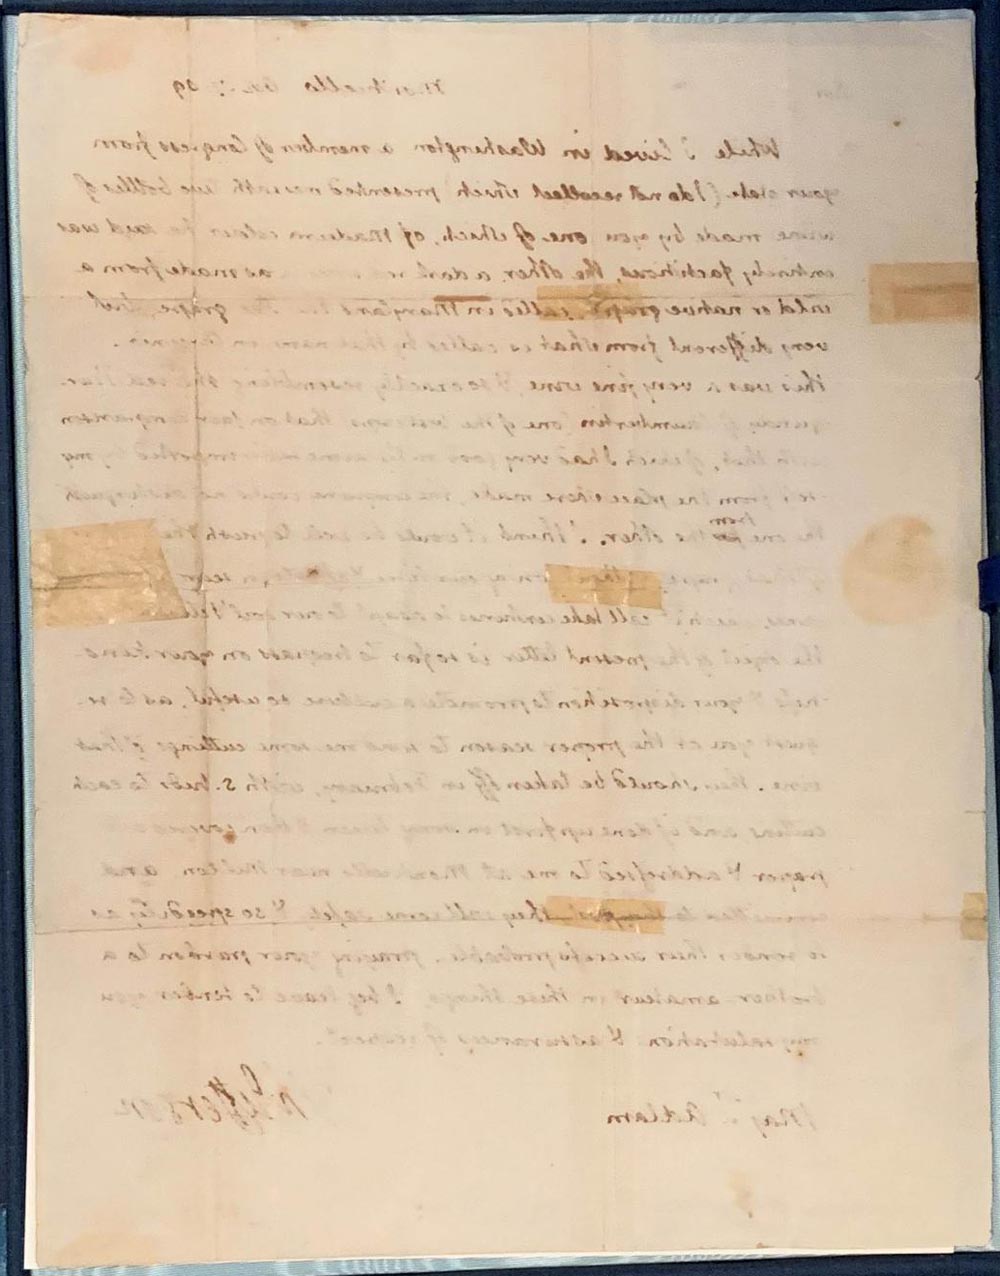 Sir Monticello Oct. 7. 09
While I lived in Washington a member of Congress from
your state (I do not recollect which) presented me with two bottles of
wine made by you one of which, of Madeira colour he said was
entirely factitious, the other a dark red was made from a
wild or native grape, called in Maryland the grape, but
very different from what is called by that name in Virginia.
this was a very fine wine, & so exactly resembling the red Bur-
gundy of Chambertin (one of the best crops) that on fair comparison
with that, of which I had very good on the same table imported by my-
self from the place where made, the company could not distinguish
the one from the other. I think it would be well to push the
of that grape
vines, which it will take centuries to adapt to our soil
the object of the present letter is so far to trespass on your kind-
ness & your disposition to promote a culture so useful, as to re-
quest you at the proper season to send me some cuttings of that
vine. they should be taken off in February, with 5. buds to each
cutting and if done up first in strong linen & then covered with
paper & addressed to me at Monticello near Milton, and
committed to the post, they will come safely & so speedily as
to render their success probable. praying your pardon to a
brother-amateur in these things, I beg leave to tender you
my salutations & assurances of respect.
Th Jefferson
Maj.r Adlum